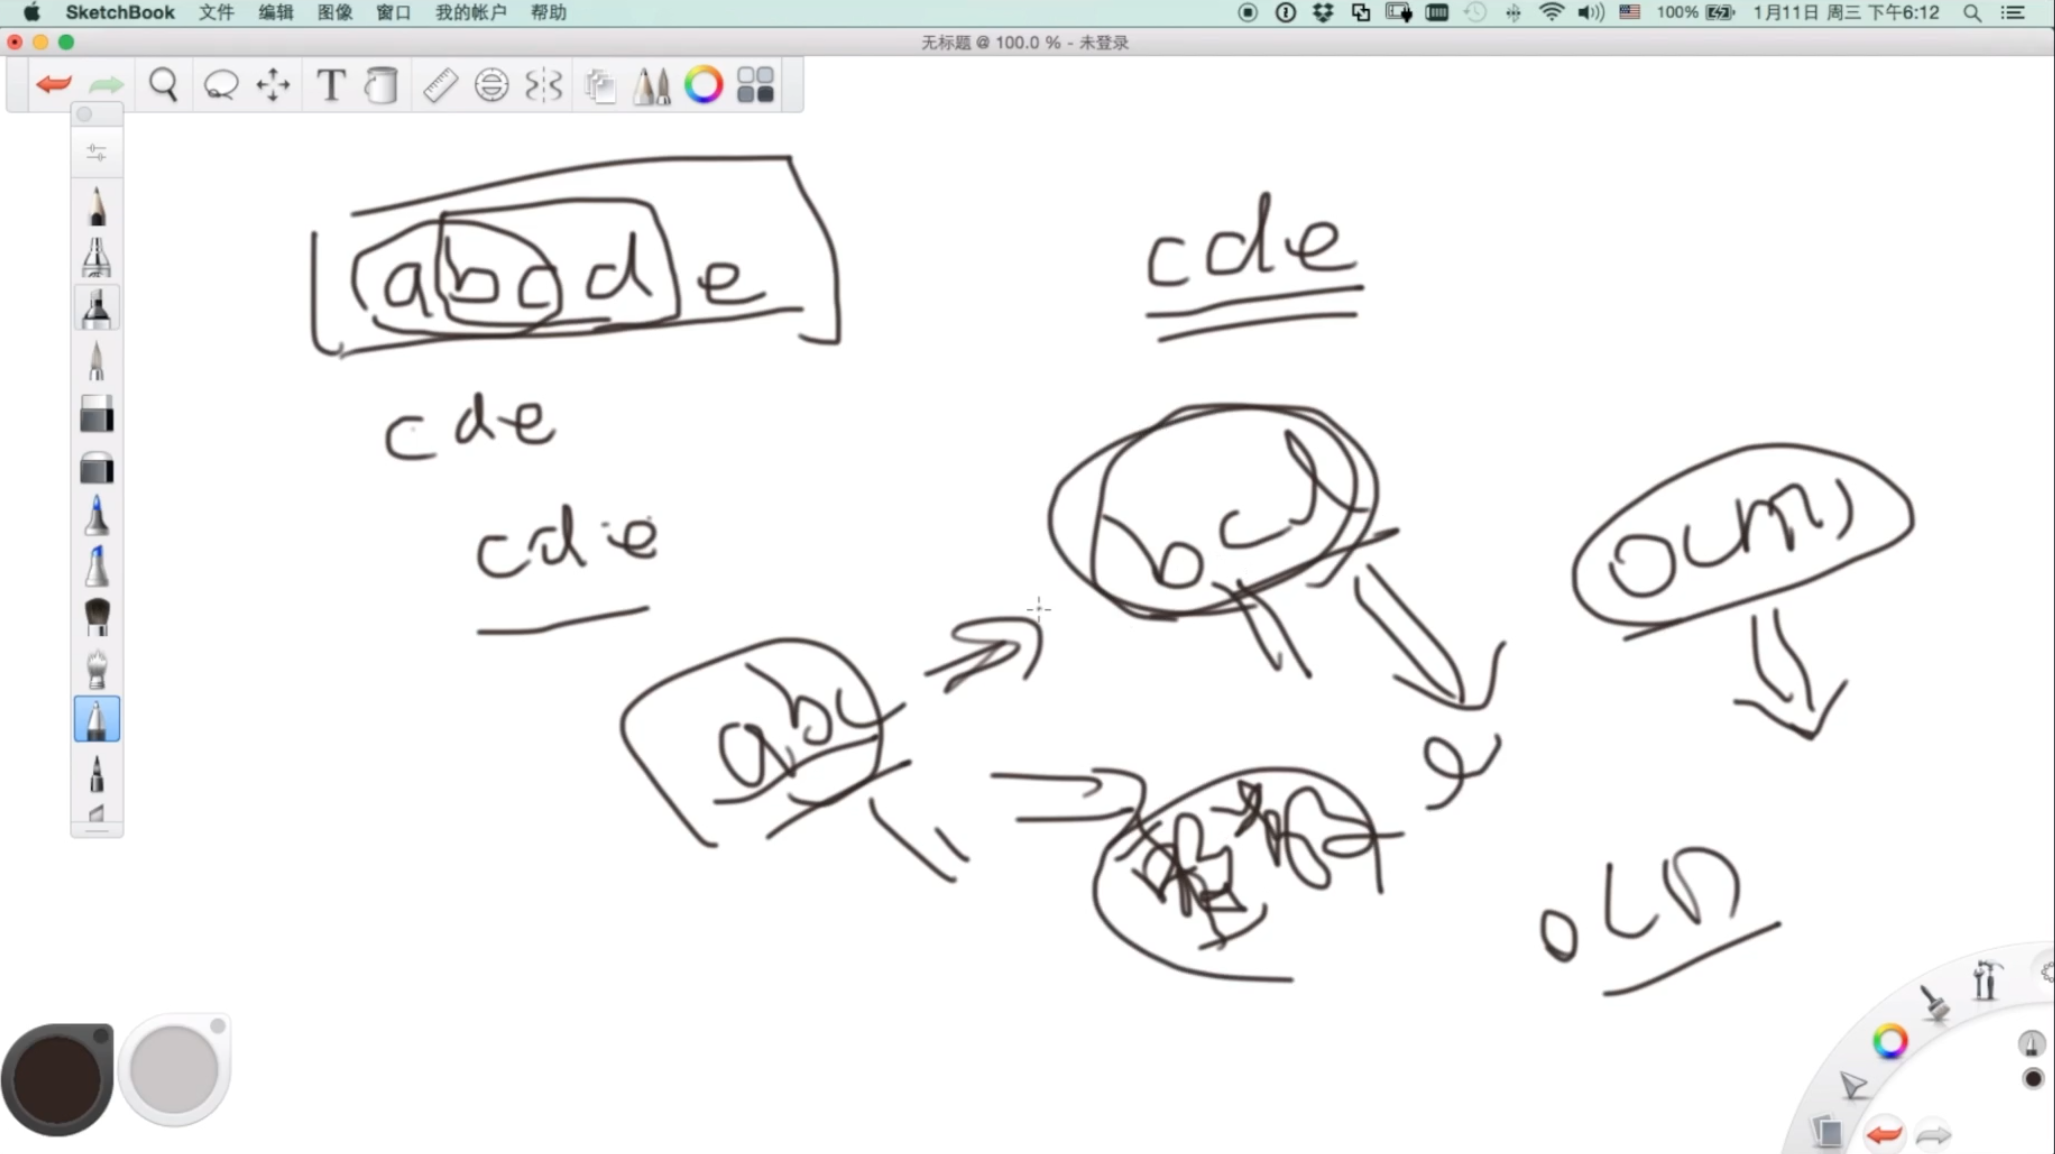 SketchBook 文件 编辑 图像 窗口 我的帐户 帮助 100% 1月11日 周三 下午6:12
无标题 @ 100.0 % - 未登录
T
abcde
cde
cde
cde
bcd
O(m)
abc
e
O(n)